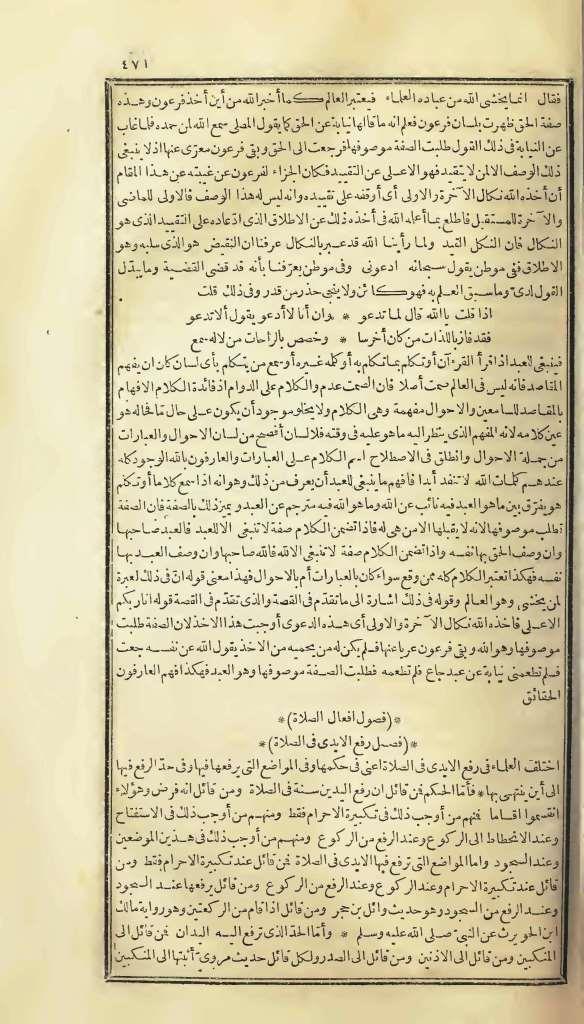 ٤٧١
فقال انما يخشى الله من عباده العلماء فيعتبر العالم كما أخبر الله من أين أخذ فرعون وهذه
صفة الحق ظهرت بلسان فرعون فعلم انه ما قالها نيابة عن الحق كما يقول المصلى سمع الله لمن حمده فلما غاب
عن النيابة فى ذلك القول طلبت الصفة موصوفها فرجعت الى الحق وبقى فرعون معرّى عنها اذ لا ينبغى
ذلك الوصف الا لمن لا يتقيد فهو الاعلى عن التقييد فكان الجزاء لفرعون عن غيبته عن هذا المقام
أن أخذه الله نكال الآخرة والاولى أى أوقفه على تقييده وانه ليس له هذا الوصف فالاولى للماضى
والآخرة للمستقبل فاطلع بما أعلمه الله فى أخذه ذلك عن الاطلاق الذى ادعاه على التقييد الذى هو
النكال فان النكل القيد ولما رأينا الله قد عبر بالنكال عرفنا ان النقيض هو الذى سلبه وهو
الاطلاق ففى موطن يقول سبحانه ادعونى وفى موطن يعرّفنا بأنه قد قضى القضية وما يبدّل
القول لدىّ وما سبق العلم به فهو كائن ولا ينجى حذر من قدر وفى ذلك قلت
اذا قلت يا الله قال لما تدعو * وان أنا لا أدعو يقول ألا تدعو
فقد فاز باللذات من كان أخرسا * وخصص بالراحات من لا له سمع
فينبغى للعبد اذا قرأ القرآن أو تكلم بما تكلم به أو كلمه غيره أو سمع من يتكلم بأى لسان كان ان يفهم
المقاصد فانه ليس فى العالم صمت أصلا فان الصمت عدم والكلام على الدوام اذ فائدة الكلام الافهام
بالمقاصد للسامعين والاحوال مفهمة وهى الكلام ولا يخلو موجود أن يكون على حال ما فحاله هو
عين كلامه لانه المفهم الذى ينظر اليه ما هو عليه فى وقته فلا لسان أفصح من لسان الاحوال والعبارات
من جملة الاحوال وانطلق فى الاصطلاح اسم الكلام على العبارات والعارفون بالله الوجود كله
عندهم كلمات الله لا تنفد أبدا فافهم ما ينبغى للعبد أن يعرف من ذلك وهو انه اذا سمع كلاما أو تكلم
هو يفرّق بين ما هو العبد فيه نائب عن الله وما هو الله فيه مترجم عن العبد ويميز ذلك بالصفة فان الصفة
تطلب موصوفها لانه لا يقبلها الا من هى له فاذا تضمن الكلام صفة لا تنبغى الا للعبد فالعبد صاحبها
وان وصف الحق بها نفسه واذا تضمن الكلام صفة لا تنبغى الا لله فالله صاحبها وان وصف العبد بها
نفسه فهكذا تعتبر الكلام كله ممن وقع سواء كان بالعبارات أم بالاحوال فهذا معنى قوله انّ فى ذلك لعبرة
لمن يخشى وهو العالم وقوله فى ذلك اشارة الى ما تقدّم فى القصة والذى تقدّم فى القصة قوله انا ربكم
الاعلى فأخذه الله نكال الآخرة والاولى أى هذه الدعوى أوجبت هذا الاخذ لان الصفة طلبت
موصوفها وهو الله وبقى فرعون عريا عنها فلم يكن له من يحميه من الاخذ يقول الله عن نفسه جعت
فلم تطعمنى نيابة عن عبد جاع فلم تطعمه فطلبت الصفة موصوفها وهو العبد فهكذا فهم العارفون
الحقائق
*(فصول افعال الصلاة)*
*(فصل رفع الايدى فى الصلاة)*
اختلف العلماء فى رفع الايدى فى الصلاة أعنى فى حكمها وفى المواضع التى يرفعها فيها وفى حدّ الرفع فيها
الى أين ينتهى بها * فأمّا الحكم فمن قائل ان رفع اليدين سنة فى الصلاة ومن قائل انه فرض وهؤلاء
انقسموا اقساما فمنهم من أوجب ذلك فى تكبيرة الاحرام فقط ومنهم من أوجب ذلك فى الاستفتاح
وعند الانحطاط الى الركوع وعند الرفع من الركوع ومنهم من أوجب ذلك فى هذين الموضعين
وعند السجود واما المواضع التى ترفع فيها الايدى فى الصلاة فمن قائل عند تكبيرة الاحرام فقط ومن
قائل عند تكبيرة الاحرام وعند الركوع وعند الرفع من الركوع ومن قائل يرفعها عند السجود
وعند الرفع من السجود وهو حديث وائل بن حجر ومن قائل اذا قام من الركعتين وهو رواية مالك
ابن الحويرث عن النبىّ صلى الله عليه وسلم * وأمّا الحدّ الذى ترفع اليه اليدان فمن قائل الى
المنكبين ومن قائل الى الاذنين ومن قائل الى الصدر ولكل قائل حديث مروىّ أثبتها الى المنكبين